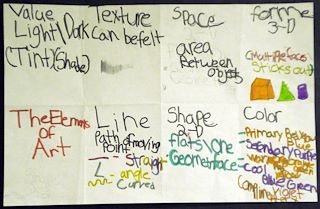 Value
Light/Dark
(Tint)(Shade)
Texture
can be felt
Space
area
Between
objects
forme
3-D
(Multiple faces
Sticks out)
The Elements
of
Art
Line
Path of moving
Point
Straight
angle
Curved
Shape
2-D
flat
One
Geometric
face
Color
Primary Red
Blue
Secondary Purple
Warm
Cool Blue Green
Violet